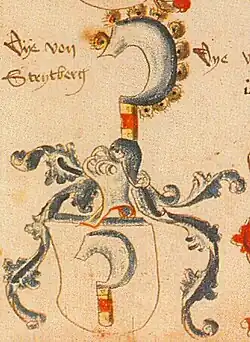 Dye von
Streytberg
Dye v